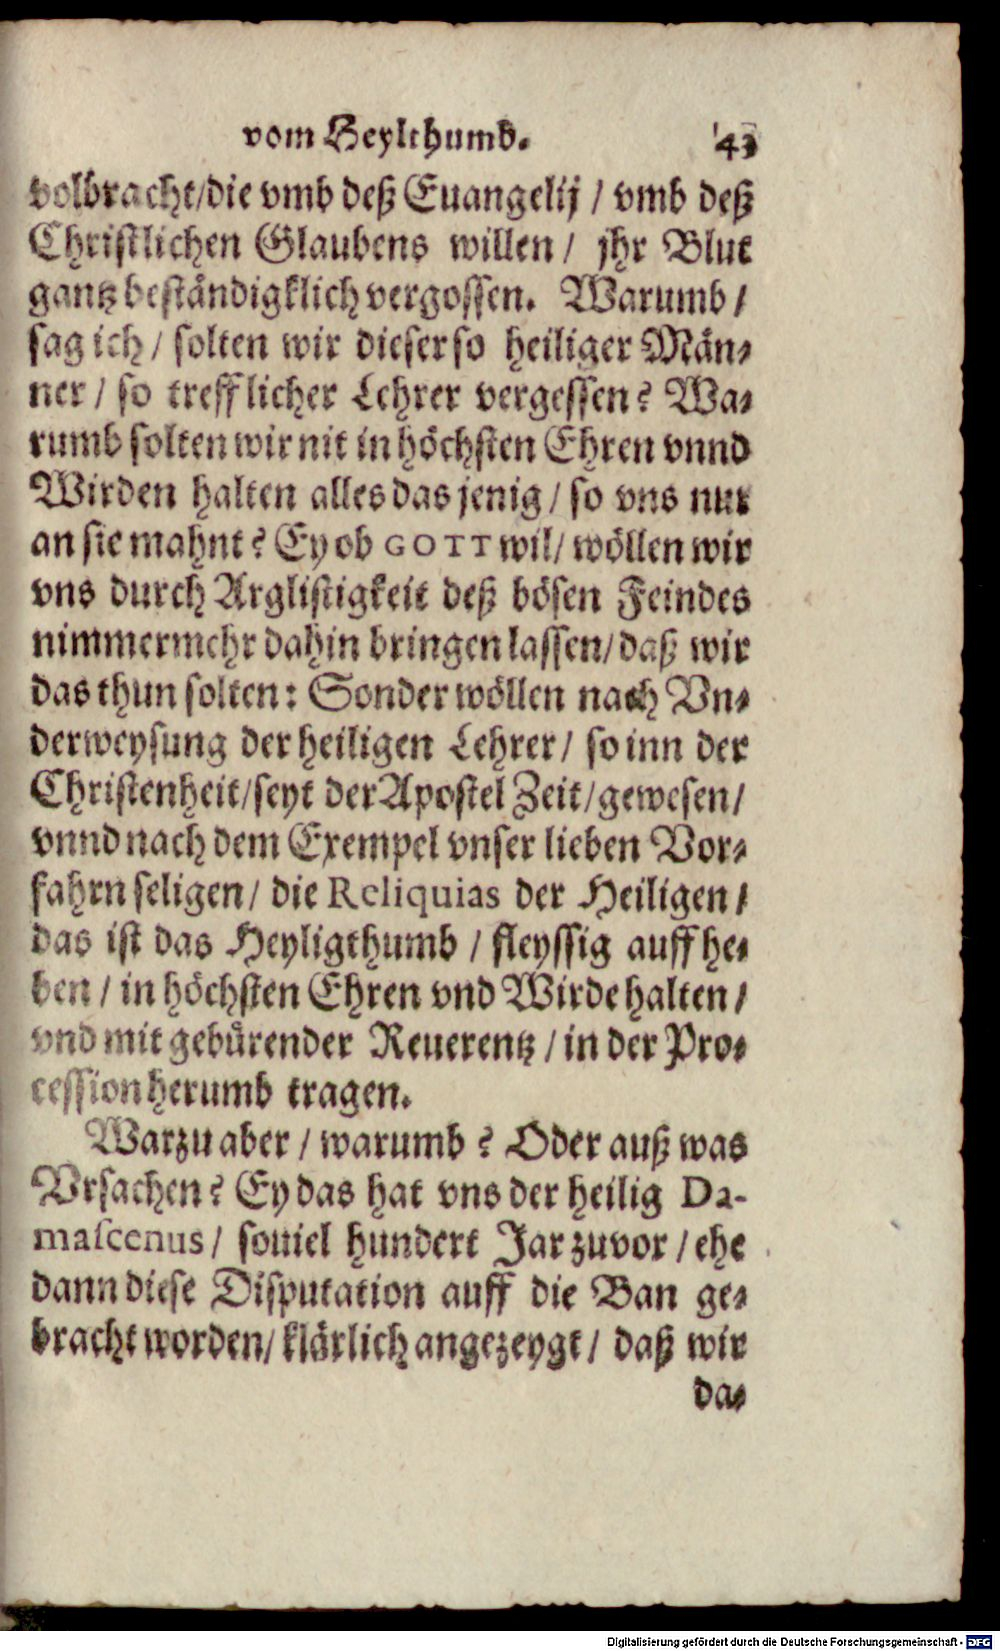 vom Heylthumb. 43
volbracht/die vmb deß Euangelij / vmb deß
Christlichen Glaubens willen / jhr Blut
gantz beständigklich vergossen. Warumb /
sag ich / solten wir dieser so heiliger Män-
ner / so trefflicher Lehrer vergessen? Wa-
rumb solten wir nit in höchsten Ehren vnnd
Wirden halten alles das jenig / so vns nur
an sie mahnt? Ey ob GOTT wil/ wöllen wir
vns durch Arglistigkeit deß bösen Feindes
nimmermehr dahin bringen lassen/daß wir
das thun solten: Sonder wöllen nach Vn-
derweysung der heiligen Lehrer / so inn der
Christenheit/seyt der Apostel Zeit/gewesen/
vnnd nach dem Exempel vnser lieben Vor-
fahrn seligen / die Reliquias der Heiligen /
das ist das Heyligthumb / fleyssig auffhe-
ben / in höchsten Ehren vnd Wirde halten /
vnd mit gebürender Reuerentz / in der Pro-
cession herumb tragen.
Warzu aber / warumb? Oder auß was
Vrsachen? Ey das hat vns der heilig Da-
mascenus / souiel hundert Jar zuvor / ehe
dann diese Disputation auff die Ban ge-
bracht worden/ klärlich angezeygt / daß wir
da-
Digitalisierung gefördert durch die Deutsche Forschungsgemeinschaft - DFG